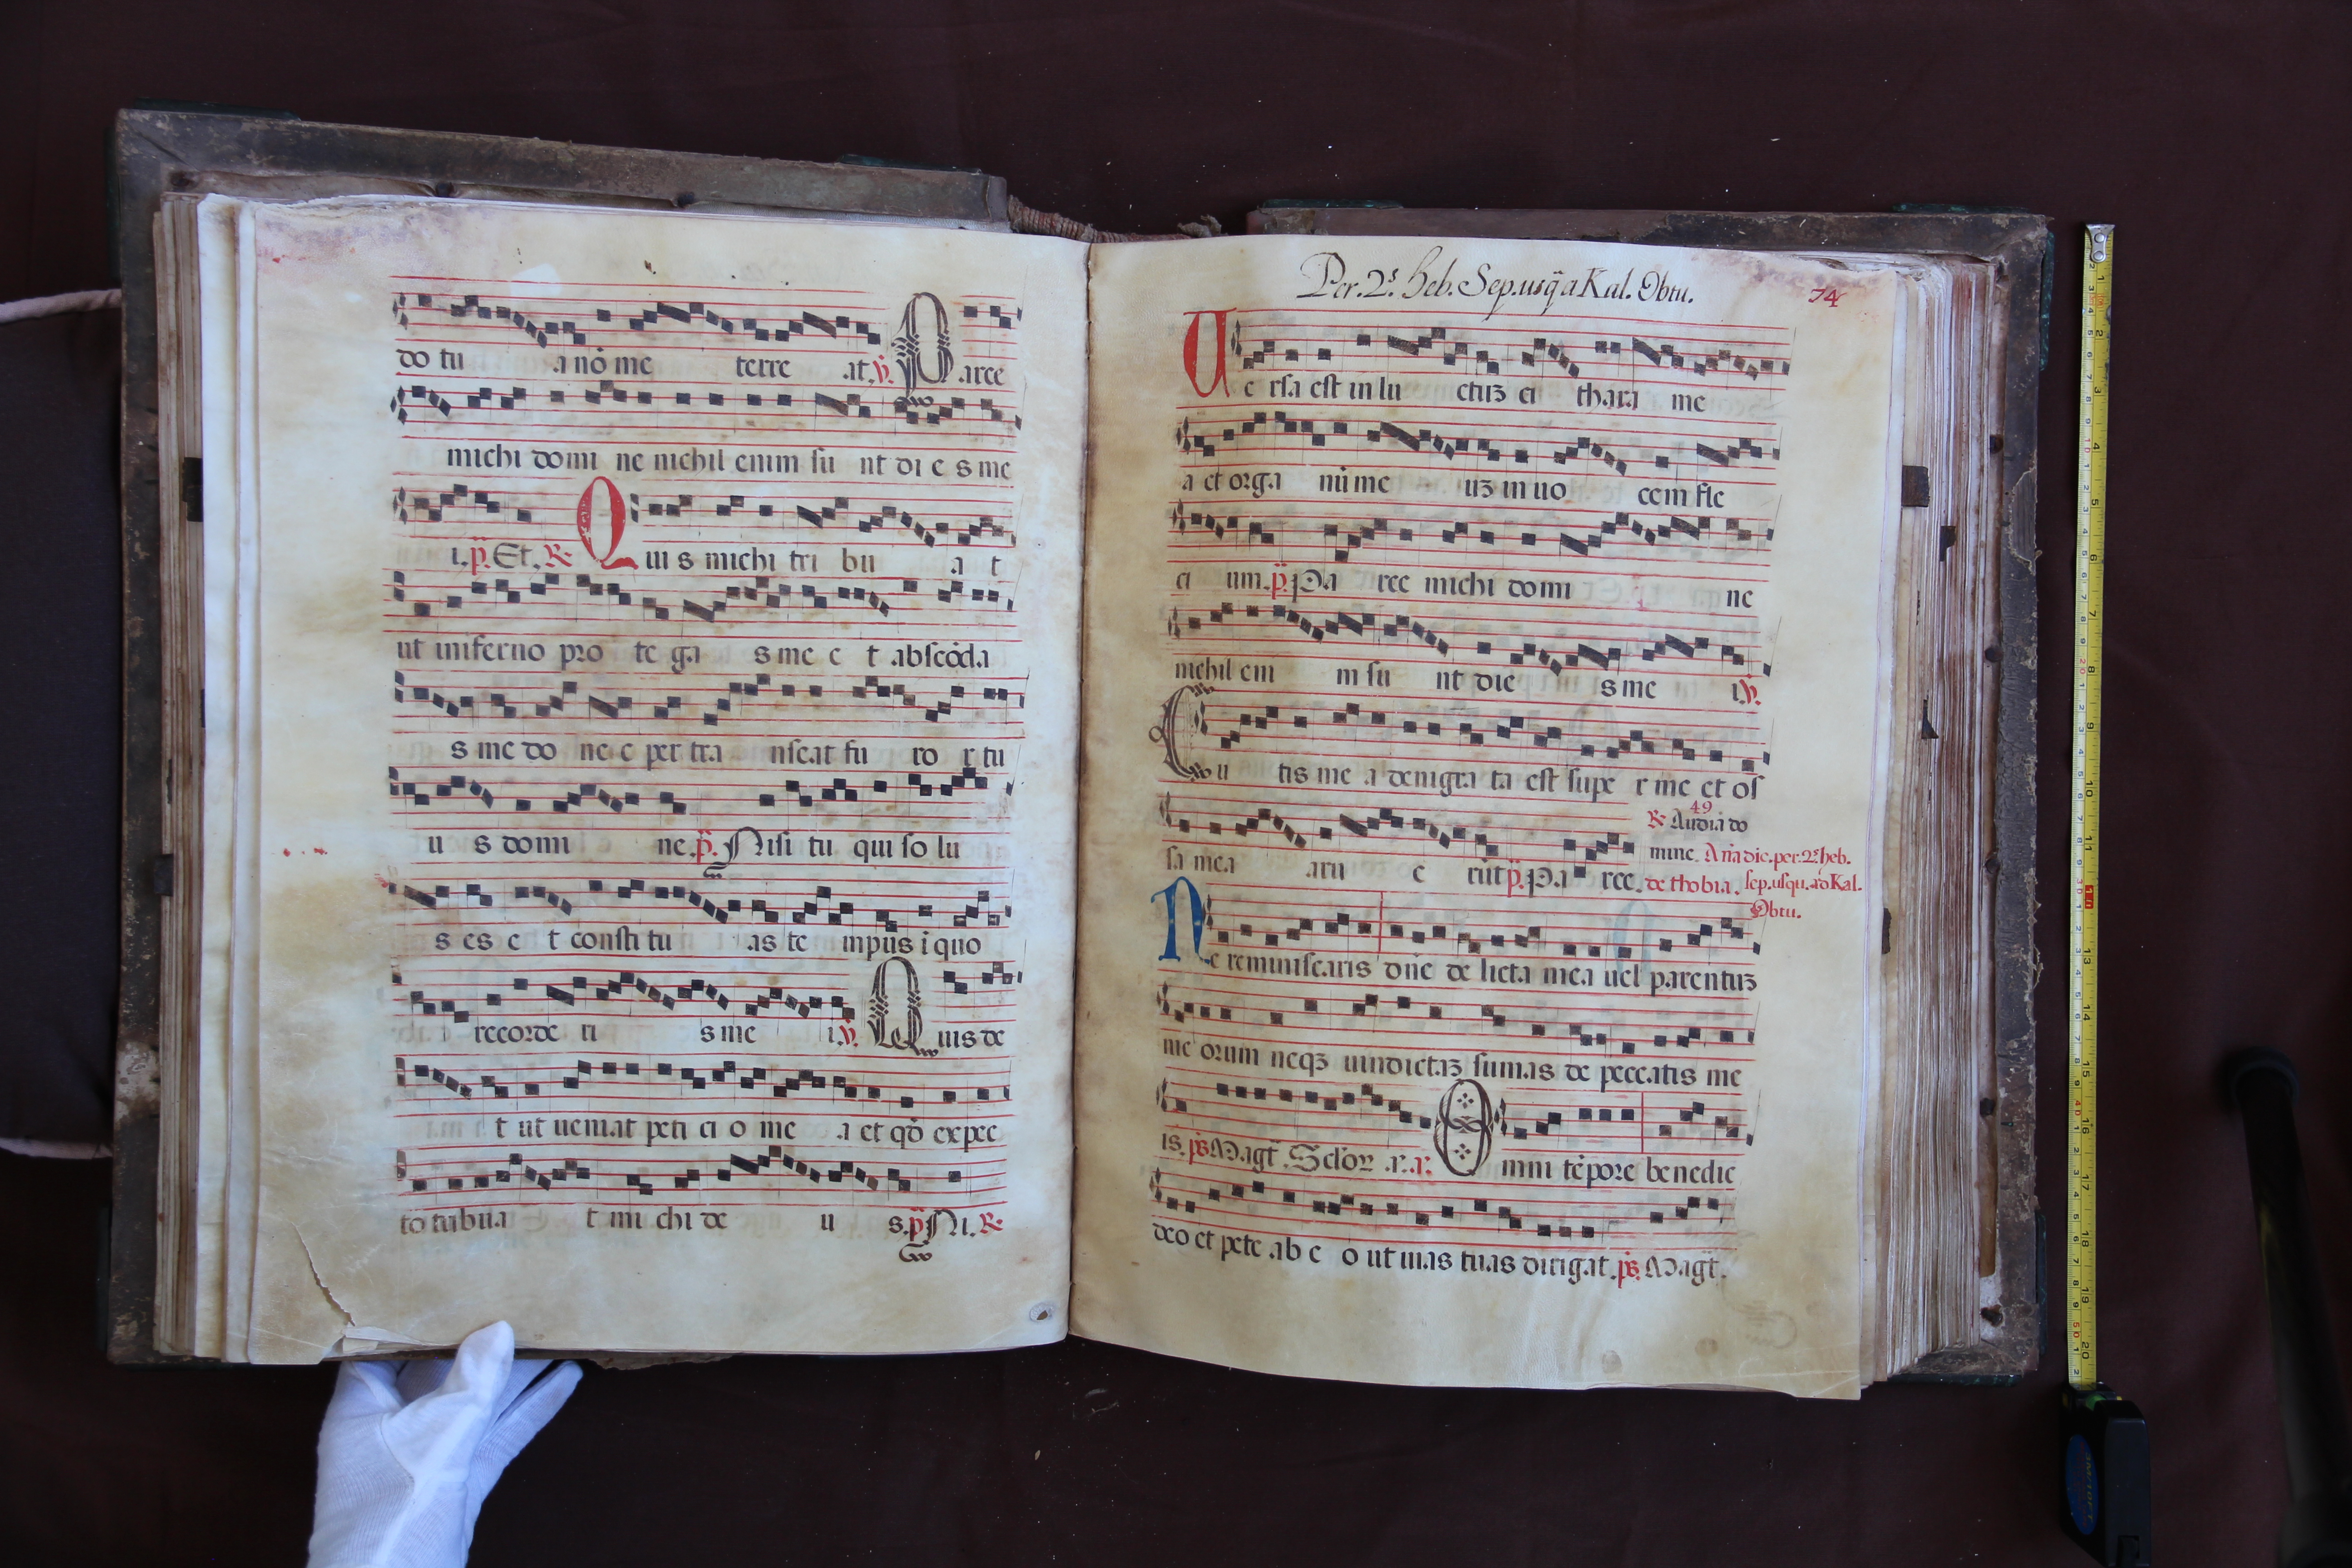 do tu a nō me terre at. ℣. Parce
michi domi ne nichil enim su nt di e s me
i. p̄. Et. ℟ Qui s michi tri bu a t
ut in inferno pro te ga s me e t abscōda
s me do ne c per tra nseat fu ro r tu
u s domi ne. p̄. Nisi tu qui so lu
s es e t consti tu as te mpus i quo
recorde ri s me i. ℣. Quis de
t ut ueniat peti ci o me a et qđ expec
to tribua t mi chi de u s. p̄ Ni. ℟
Per. 2ˢ. heb. Sep. usq̄ a Kal. Obtu.
74
Ue rsa est in lu ctuʒ ci thara me
a et orga nū me uʒ in uo cem fle
ci um. p̄. Pa rce michi domi ne
nichil eni m su nt die s me i. ℣.
Cu tis me a denigra ta est supe r me et os
49
℟ Audiā do
sa mea aru e rūt p̄. Pa rce. mine. Aña dic. per. 2ˢ heb.
de thobia. sep. usqu. ad Kal.
Obtu.
Ne reminiscaris dn̄e de licta mea uel parentuʒ
me orum neqʒ uindictaʒ sumas de peccatis me
is. ps Magt̄. Sclōꝝ a. a. Omni tēpore benedic
deo et pete ab e o ut uias tuas dirigat. ps. Magt̄.